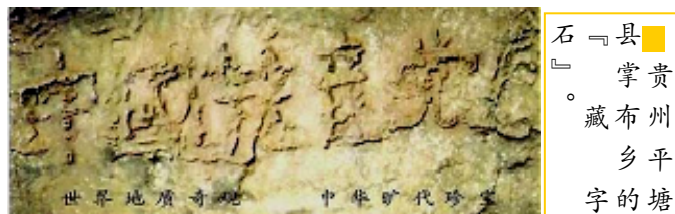 中國共産党亡
世界地质奇观 中华旷代珍宝
贵州平塘
县掌布乡的
『藏字
石』。